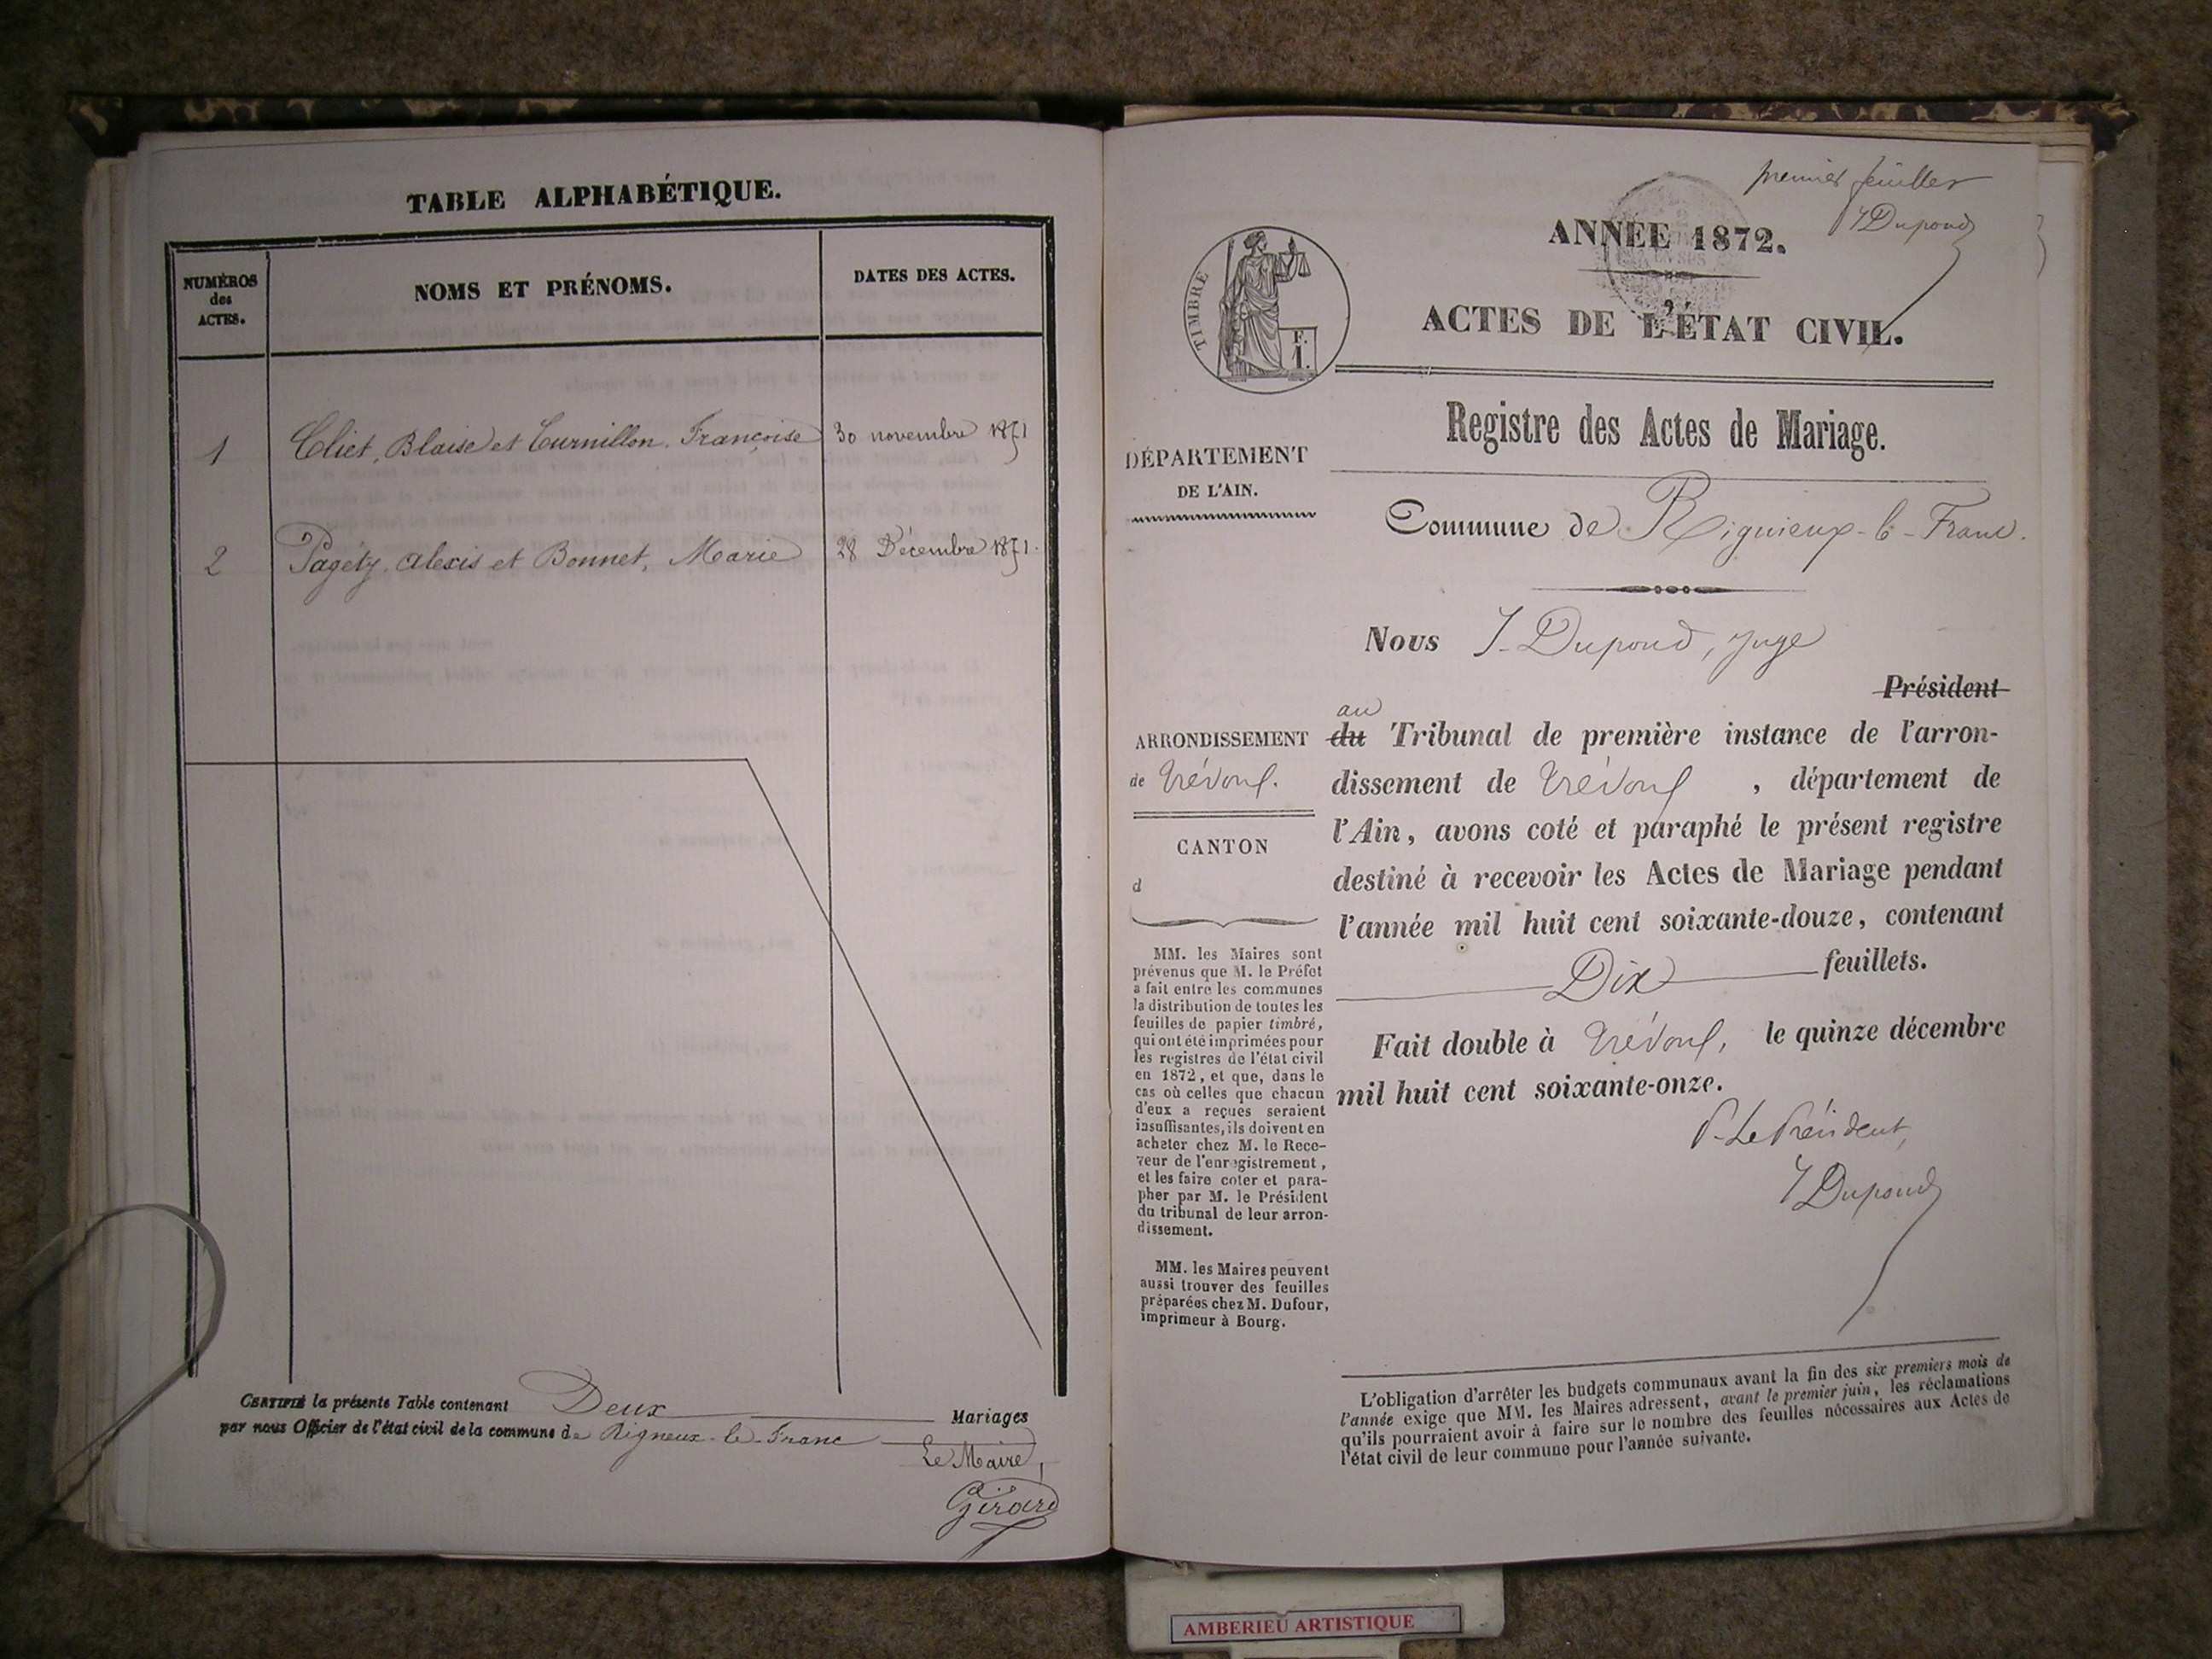 TABLE ALPHABÉTIQUE.
NUMÉROS des ACTES.
NOMS ET PRÉNOMS.
DATES DES ACTES.
1 Cliet, Blaise et Curnillon, Françoise 30 novembre 1871
2 Pagéty, Alexis et Bonnet, Marie 28 Décembre 1871.
CERTIFIÉ la présente Table contenant Deux Mariages
par nous Officier de l'état civil de la commune de Rigneux-le-Franc
Le Maire,
Girard
premier feuillet
J Dupond
ANNÉE 1872.
ACTES DE L'ÉTAT CIVIL.
TIMBRE
F.
1.
Registre des Actes de Mariage.
DÉPARTEMENT
DE L'AIN.
Commune de Riguieux-le-Franc.
Nous J. Dupond, juge
Président
au
ARRONDISSEMENT
de Trévoux.
CANTON
d
du Tribunal de première instance de l'arron-
dissement de Trévoux, département de
l'Ain, avons coté et paraphé le présent registre
destiné à recevoir les Actes de Mariage pendant
l'année mil huit cent soixante-douze, contenant
Dix feuillets.
Fait double à Trévoux, le quinze décembre
mil huit cent soixante-onze.
P. Le Président,
J Dupond
MM. les Maires sont
prévenus que M. le Préfet
a fait entre les communes
la distribution de toutes les
feuilles de papier timbré,
qui ont été imprimées pour
les registres de l'état civil
en 1872, et que, dans le
cas où celles que chacun
d'eux a reçues seraient
insuffisantes, ils doivent en
acheter chez M. le Rece-
veur de l'enregistrement,
et les faire coter et para-
pher par M. le Président
du tribunal de leur arron-
dissement.
MM. les Maires peuvent
aussi trouver des feuilles
préparées chez M. Dufour,
imprimeur à Bourg.
L'obligation d'arrêter les budgets communaux avant la fin des six premiers mois de
l'année exige que MM. les Maires adressent, avant le premier juin, les réclamations
qu'ils pourraient avoir à faire sur le nombre des feuilles nécessaires aux Actes de
l'état civil de leur commune pour l'année suivante.
AMBERIEU ARTISTIQUE